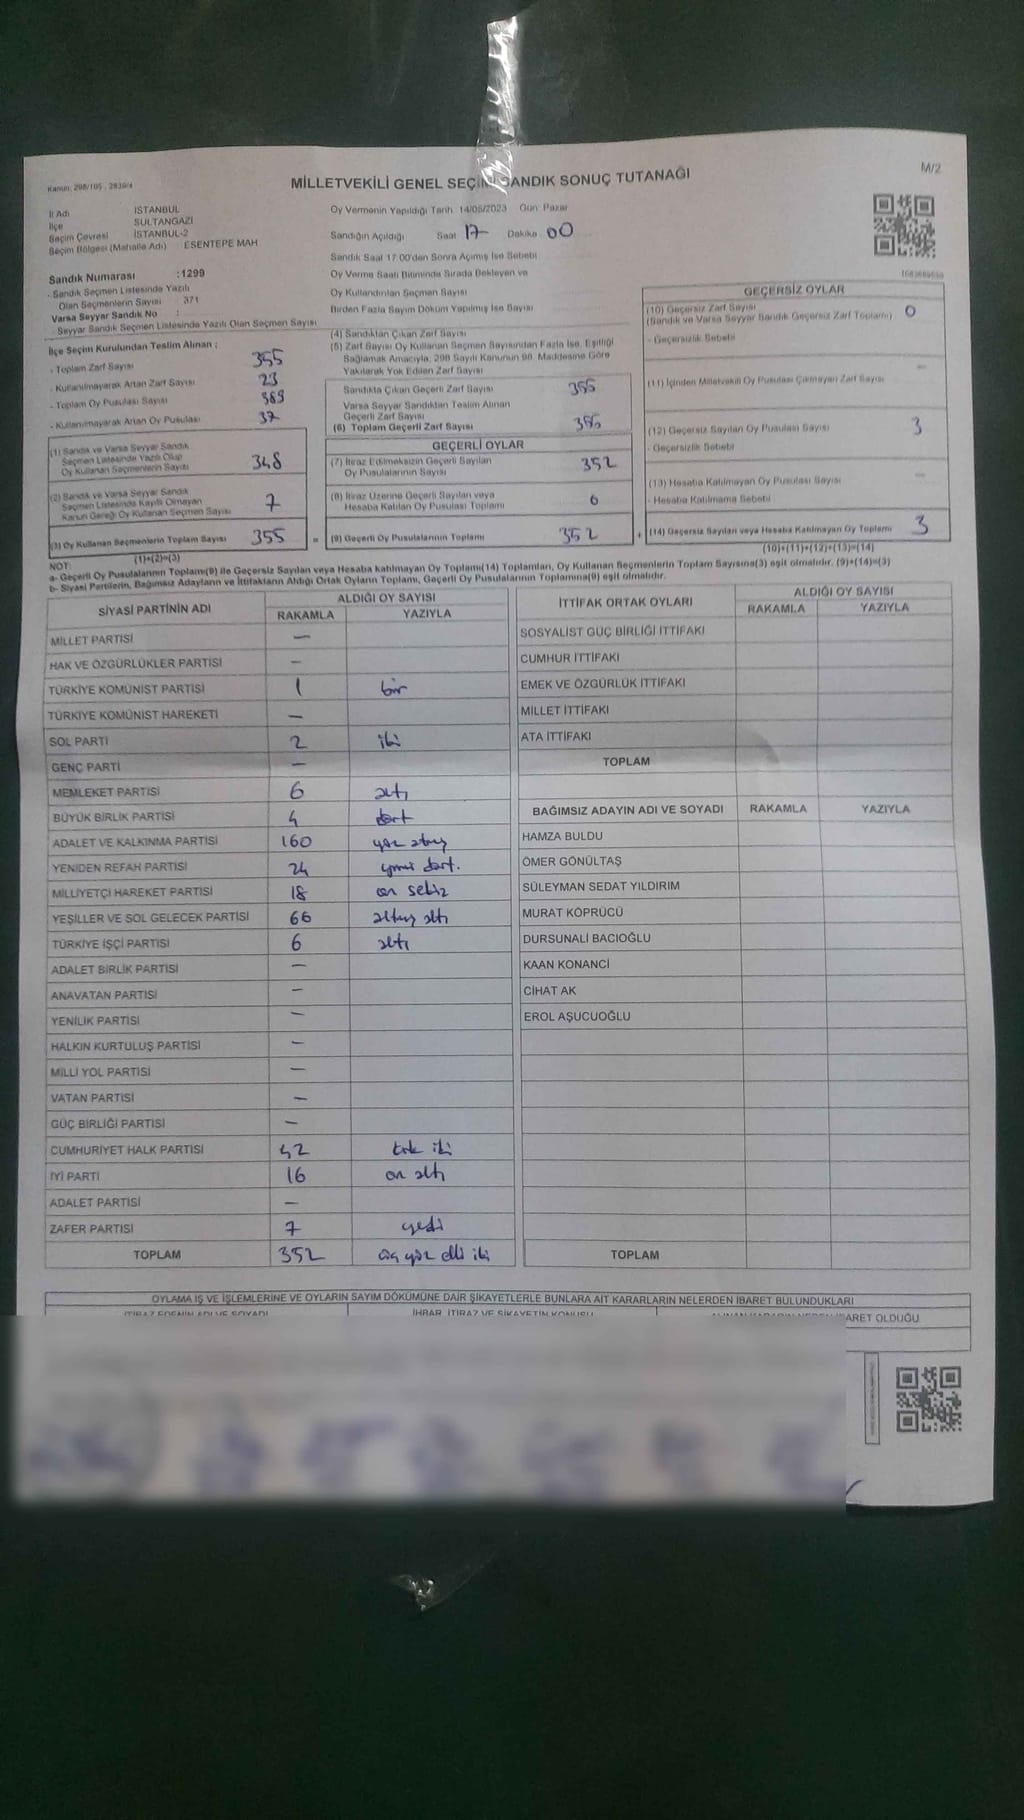 Kanun: 298/105 , 2839/4
MİLLETVEKİLİ GENEL SEÇİMİ SANDIK SONUÇ TUTANAĞI
M/2
İl Adı İSTANBUL
İlçe SULTANGAZİ
Seçim Çevresi İSTANBUL-2
Seçim Bölgesi (Mahalle Adı) ESENTEPE MAH
Oy Vermenin Yapıldığı Tarih 14/05/2023 Gün Pazar
Sandığın Açıldığı Saat 17 Dakika 00
Sandık Saat 17:00'den Sonra Açılmış İse Sebebi
Oy Verme Saati Bitiminde Sırada Bekleyen ve
Oy Kullandırılan Seçmen Sayısı
Birden Fazla Sayım Döküm Yapılmış İse Sayısı
Sandık Numarası :1299
- Sandık Seçmen Listesinde Yazılı
Olan Seçmenlerin Sayısı : 371
Varsa Seyyar Sandık No :
- Seyyar Sandık Seçmen Listesinde Yazılı Olan Seçmen Sayısı
İlçe Seçim Kurulundan Teslim Alınan :
- Toplam Zarf Sayısı 355
- Kullanılmayarak Artan Zarf Sayısı 23
- Toplam Oy Pusulası Sayısı 389
- Kullanılmayarak Artan Oy Pusulası 37
(1) Sandık ve Varsa Seyyar Sandık
Seçmen Listesinde Yazılı Olup
Oy Kullanan Seçmenlerin Sayısı 348
(2) Sandık ve Varsa Seyyar Sandık
Seçmen Listesinde Kayıtlı Olmayan
Kanun Gereği Oy Kullanan Seçmen Sayısı 7
(3) Oy Kullanan Seçmenlerin Toplam Sayısı 355
(1)+(2)=(3)
(4) Sandıktan Çıkan Zarf Sayısı
(5) Zarf Sayısı Oy Kullanan Seçmen Sayısından Fazla İse, Eşitliği
Sağlamak Amacıyla, 298 Sayılı Kanunun 98. Maddesine Göre
Yakılarak Yok Edilen Zarf Sayısı
Sandıkta Çıkan Geçerli Zarf Sayısı 355
Varsa Seyyar Sandıktan Teslim Alınan
Geçerli Zarf Sayısı
(6) Toplam Geçerli Zarf Sayısı 355
GEÇERLİ OYLAR
(7) İtiraz Edilmeksizin Geçerli Sayılan
Oy Pusulalarının Sayısı 352
(8) İtiraz Üzerine Geçerli Sayılan veya
Hesaba Katılan Oy Pusulası Toplamı 0
= (9) Geçerli Oy Pusulalarının Toplamı 352 +
GEÇERSİZ OYLAR
(10) Geçersiz Zarf Sayısı
(Sandık ve Varsa Seyyar Sandık Geçersiz Zarf Toplamı) 0
- Geçersizlik Sebebi
(11) İçinden Milletvekili Oy Pusulası Çıkmayan Zarf Sayısı —
(12) Geçersiz Sayılan Oy Pusulası Sayısı 3
- Geçersizlik Sebebi
(13) Hesaba Katılmayan Oy Pusulası Sayısı —
- Hesaba Katılmama Sebebi
(14) Geçersiz Sayılan veya Hesaba Katılmayan Oy Toplamı 3
(10)+(11)+(12)+(13)=(14)
NOT:
a- Geçerli Oy Pusulalarının Toplamı(9) ile Geçersiz Sayılan veya Hesaba katılmayan Oy Toplamı(14) Toplamları, Oy Kullanan Seçmenlerin Toplam Sayısına(3) eşit olmalıdır. (9)+(14)=(3)
b- Siyasi Partilerin, Bağımsız Adayların ve İttifakların Aldığı Ortak Oyların Toplamı, Geçerli Oy Pusulalarının Toplamına(9) eşit olmalıdır.
SİYASİ PARTİNİN ADI ALDIĞI OY SAYISI
RAKAMLA YAZIYLA
MİLLET PARTİSİ —
HAK VE ÖZGÜRLÜKLER PARTİSİ —
TÜRKİYE KOMÜNİST PARTİSİ 1 bir
TÜRKİYE KOMÜNİST HAREKETİ —
SOL PARTİ 2 iki
GENÇ PARTİ —
MEMLEKET PARTİSİ 6 altı
BÜYÜK BİRLİK PARTİSİ 4 dört
ADALET VE KALKINMA PARTİSİ 160 yüz atmış
YENİDEN REFAH PARTİSİ 24 yirmi dört.
MİLLİYETÇİ HAREKET PARTİSİ 18 on sekiz
YEŞİLLER VE SOL GELECEK PARTİSİ 66 altmış altı
TÜRKİYE İŞÇİ PARTİSİ 6 altı
ADALET BİRLİK PARTİSİ —
ANAVATAN PARTİSİ —
YENİLİK PARTİSİ —
HALKIN KURTULUŞ PARTİSİ —
MİLLİ YOL PARTİSİ —
VATAN PARTİSİ —
GÜÇ BİRLİĞİ PARTİSİ —
CUMHURİYET HALK PARTİSİ 42 kırk iki
İYİ PARTİ 16 on altı
ADALET PARTİSİ —
ZAFER PARTİSİ 7 yedi
TOPLAM 352 üç yüz elli iki
İTTİFAK ORTAK OYLARI ALDIĞI OY SAYISI
RAKAMLA YAZIYLA
SOSYALİST GÜÇ BİRLİĞİ İTTİFAKI
CUMHUR İTTİFAKI
EMEK VE ÖZGÜRLÜK İTTİFAKI
MİLLET İTTİFAKI
ATA İTTİFAKI
TOPLAM
BAĞIMSIZ ADAYIN ADI VE SOYADI RAKAMLA YAZIYLA
HAMZA BULDU
ÖMER GÖNÜLTAŞ
SÜLEYMAN SEDAT YILDIRIM
MURAT KÖPRÜCÜ
DURSUNALİ BACIOĞLU
KAAN KONANCİ
CİHAT AK
EROL AŞUCUOĞLU
TOPLAM
OYLAMA İŞ VE İŞLEMLERİNE VE OYLARIN SAYIM DÖKÜMÜNE DAİR ŞİKAYETLERLE BUNLARA AİT KARARLARIN NELERDEN İBARET BULUNDUKLARI
İTİRAZ EDENİN ADI VE SOYADI İHBAR, İTİRAZ VE ŞİKAYETİN KONUSU